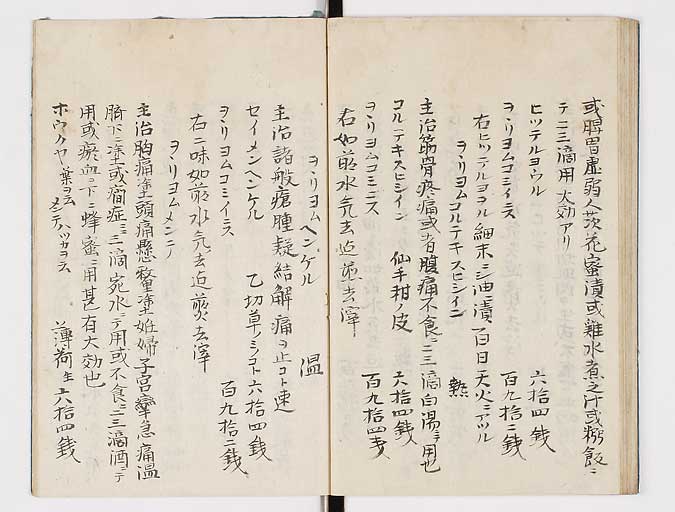 或脾胃虚弱人茨花蜜漬或雞水煮之汁或粥飯ニ
テ二三滴用大効アリ
ヒツテルヨウル 六拾四銭
ヲヽリヨムコミイニス 百九拾二銭
右ヒツテルヨフル細末シ油ニ漬百日天火ニアツル
ヲヽリヨムコルテキスヒシイン 熱
主治筋骨疼痛或者腹痛不食ニ二三滴白湯ニテ用也
コルテキスヒシイン 仙手柑ノ皮 六拾四銭
ヲヽリヨムコミニス 百九拾四銭
右如前水気去迠煎去滓
ヲヽリヨムヘンケル 温
主治諸般瘡腫凝結解痛ヲ止コト速
セイメンヘンケル 乙切草ノシコト六拾四銭
ヲヽリヨムコミイニス 百九拾二銭
右二味如前水気去迠煎去滓
ヲヽリヨムメンニノ
主治胸痛塗頭痛懸塗妊婦子宮攣急痛温
臍下ニ塗或癇症ニ二三滴宛水ニテ用或不食ニ二三滴酒ニテ
用或瘀血ヲ下ニ蜂蜜ニ用甚有大効也
ホウクヤヽ葉ヲ云メンテハツカヲ云 薄荷生六拾四銭